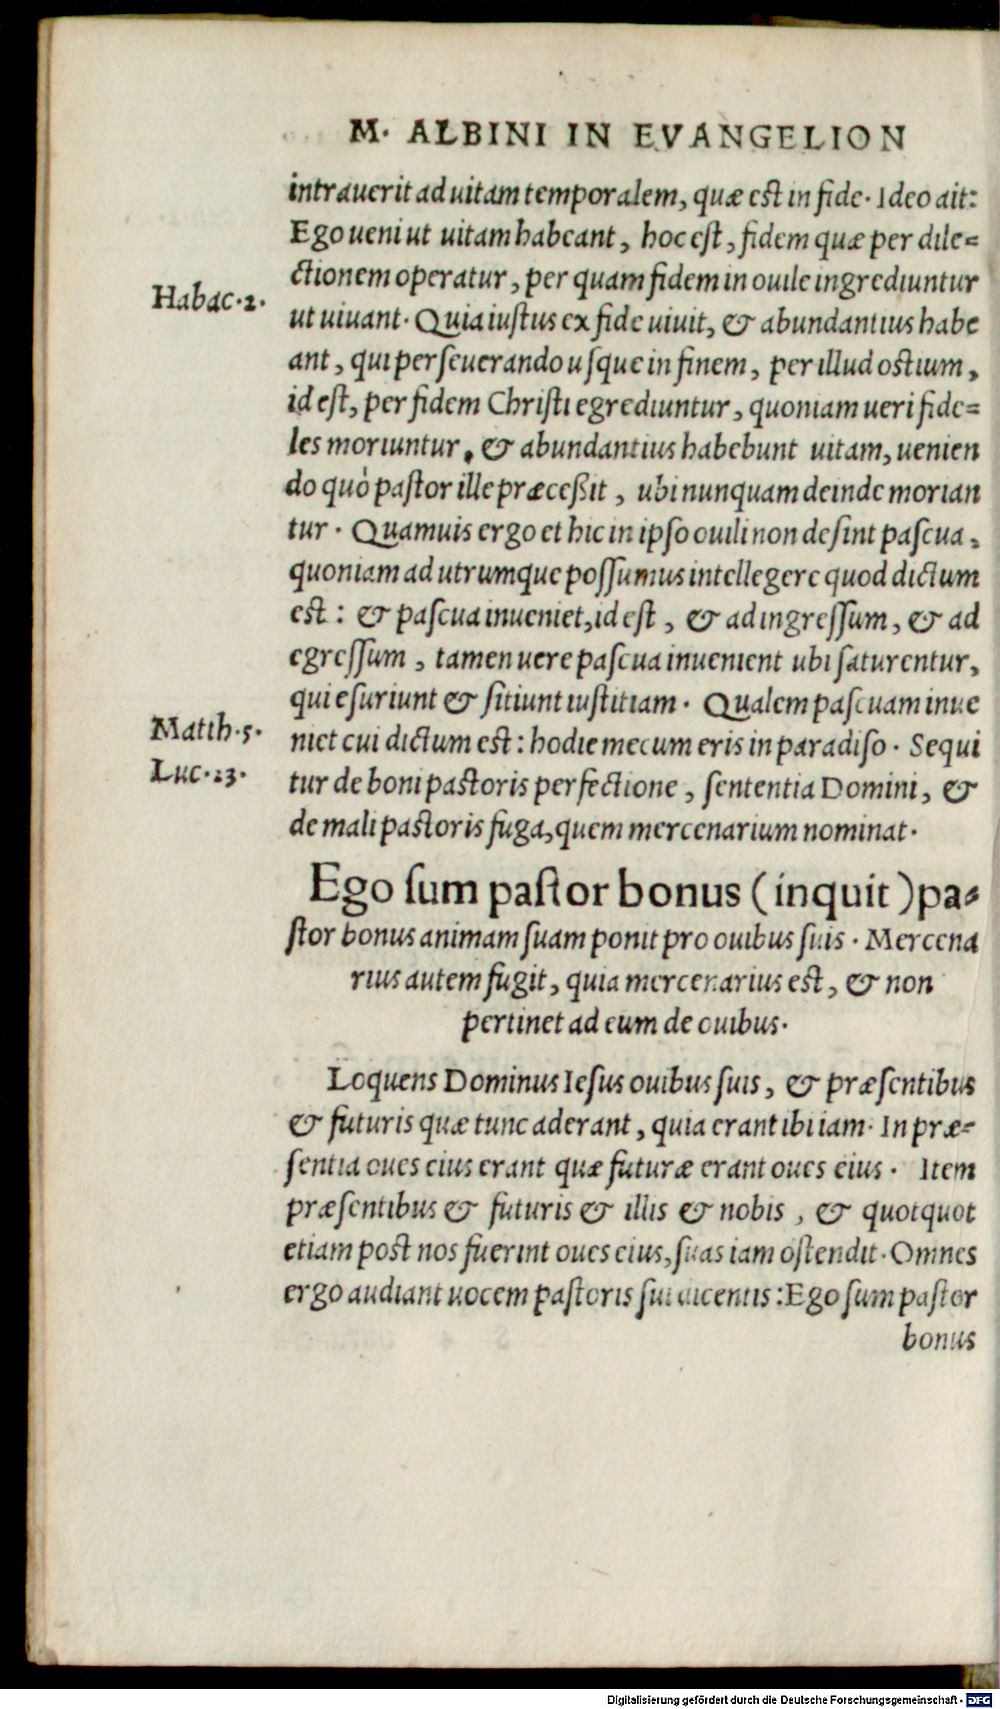 M. ALBINI IN EVANGELION
intrauerit ad uitam temporalem, quæ est in fide. Ideo ait:
Ego ueni ut uitam habeant, hoc est, fidem quæ per dile=
Habac. 2.
ctionem operatur, per quam fidem in ouile ingrediuntur
ut uiuant. Quia iustus ex fide uiuit, & abundantius habe
ant, qui perseuerando usque in finem, per illud ostium,
id est, per fidem Christi egrediuntur, quoniam ueri fide=
les moriuntur, & abundantius habebunt uitam, uenien
do quò pastor ille præceßit, ubi nunquam deinde morian
tur. Quamuis ergo et hic in ipso ouili non desint pascua,
quoniam ad utrumque possumus intellegere quod dictum
est: & pascua inueniet, id est, & ad ingressum, & ad
egressum, tamen uere pascua inuenient ubi saturentur,
qui esuriunt & sitiunt iustitiam. Qualem pascuam inue
Matth. 5.
niet cui dictum est: hodie mecum eris in paradiso. Sequi
Luc. 23.
tur de boni pastoris perfectione, sententia Domini, &
de mali pastoris fuga, quem mercenarium nominat.
Ego sum pastor bonus (inquit) pa=
stor bonus animam suam ponit pro ouibus suis. Mercena
rius autem fugit, quia mercenarius est, & non
pertinet ad eum de ouibus.
Loquens Dominus Iesus ouibus suis, & præsentibus
& futuris quæ tunc aderant, quia erant ibi iam. In præ=
sentia oues eius erant quæ futuræ erant oues eius. Item
præsentibus & futuris & illis & nobis, & quotquot
etiam post nos fuerint oues eius, suas iam ostendit. Omnes
ergo audiant uocem pastoris sui dicentis: Ego sum pastor
bonus
Digitalisierung gefördert durch die Deutsche Forschungsgemeinschaft - DFG